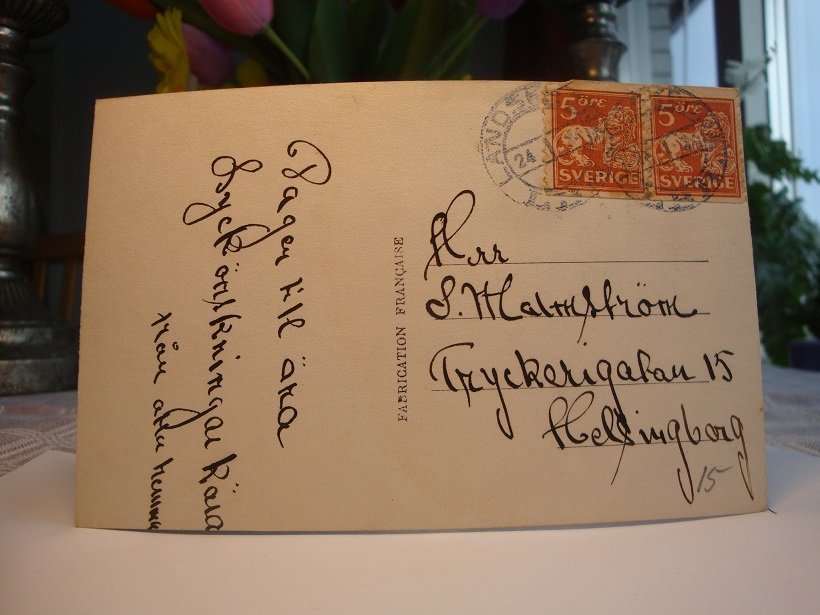 Dagen till ära
Lyckönskningar kära
från alla hemma
FABRICATION FRANÇAISE
LANDSK
24
5 ÖRE
SVERIGE
5 ÖRE
SVERIGE
Herr
S. Malmström
Tryckerigatan 15
Helsingborg
15